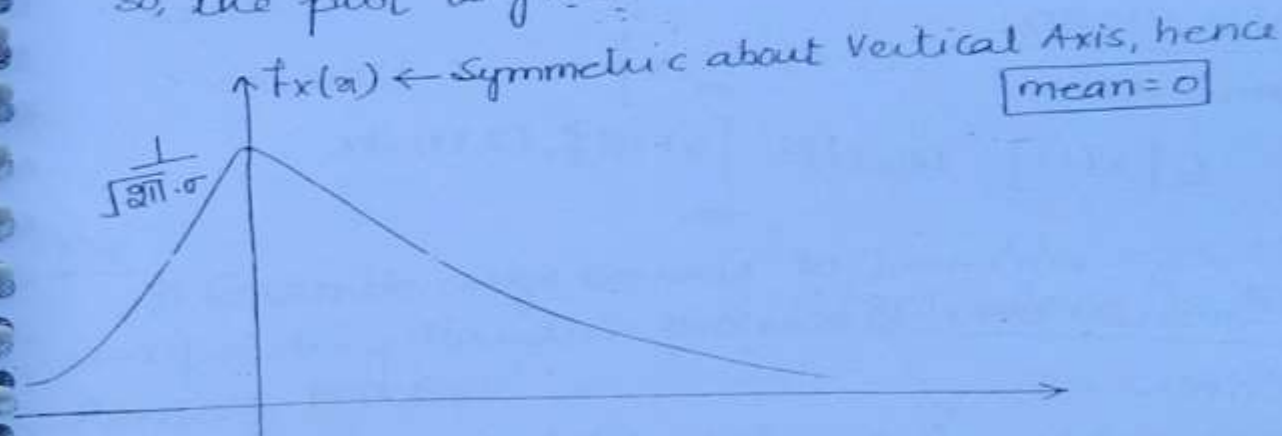 so, the
fx(x) ← Symmetric about Vertical Axis, hence
mean = 0
1
√2π · σ